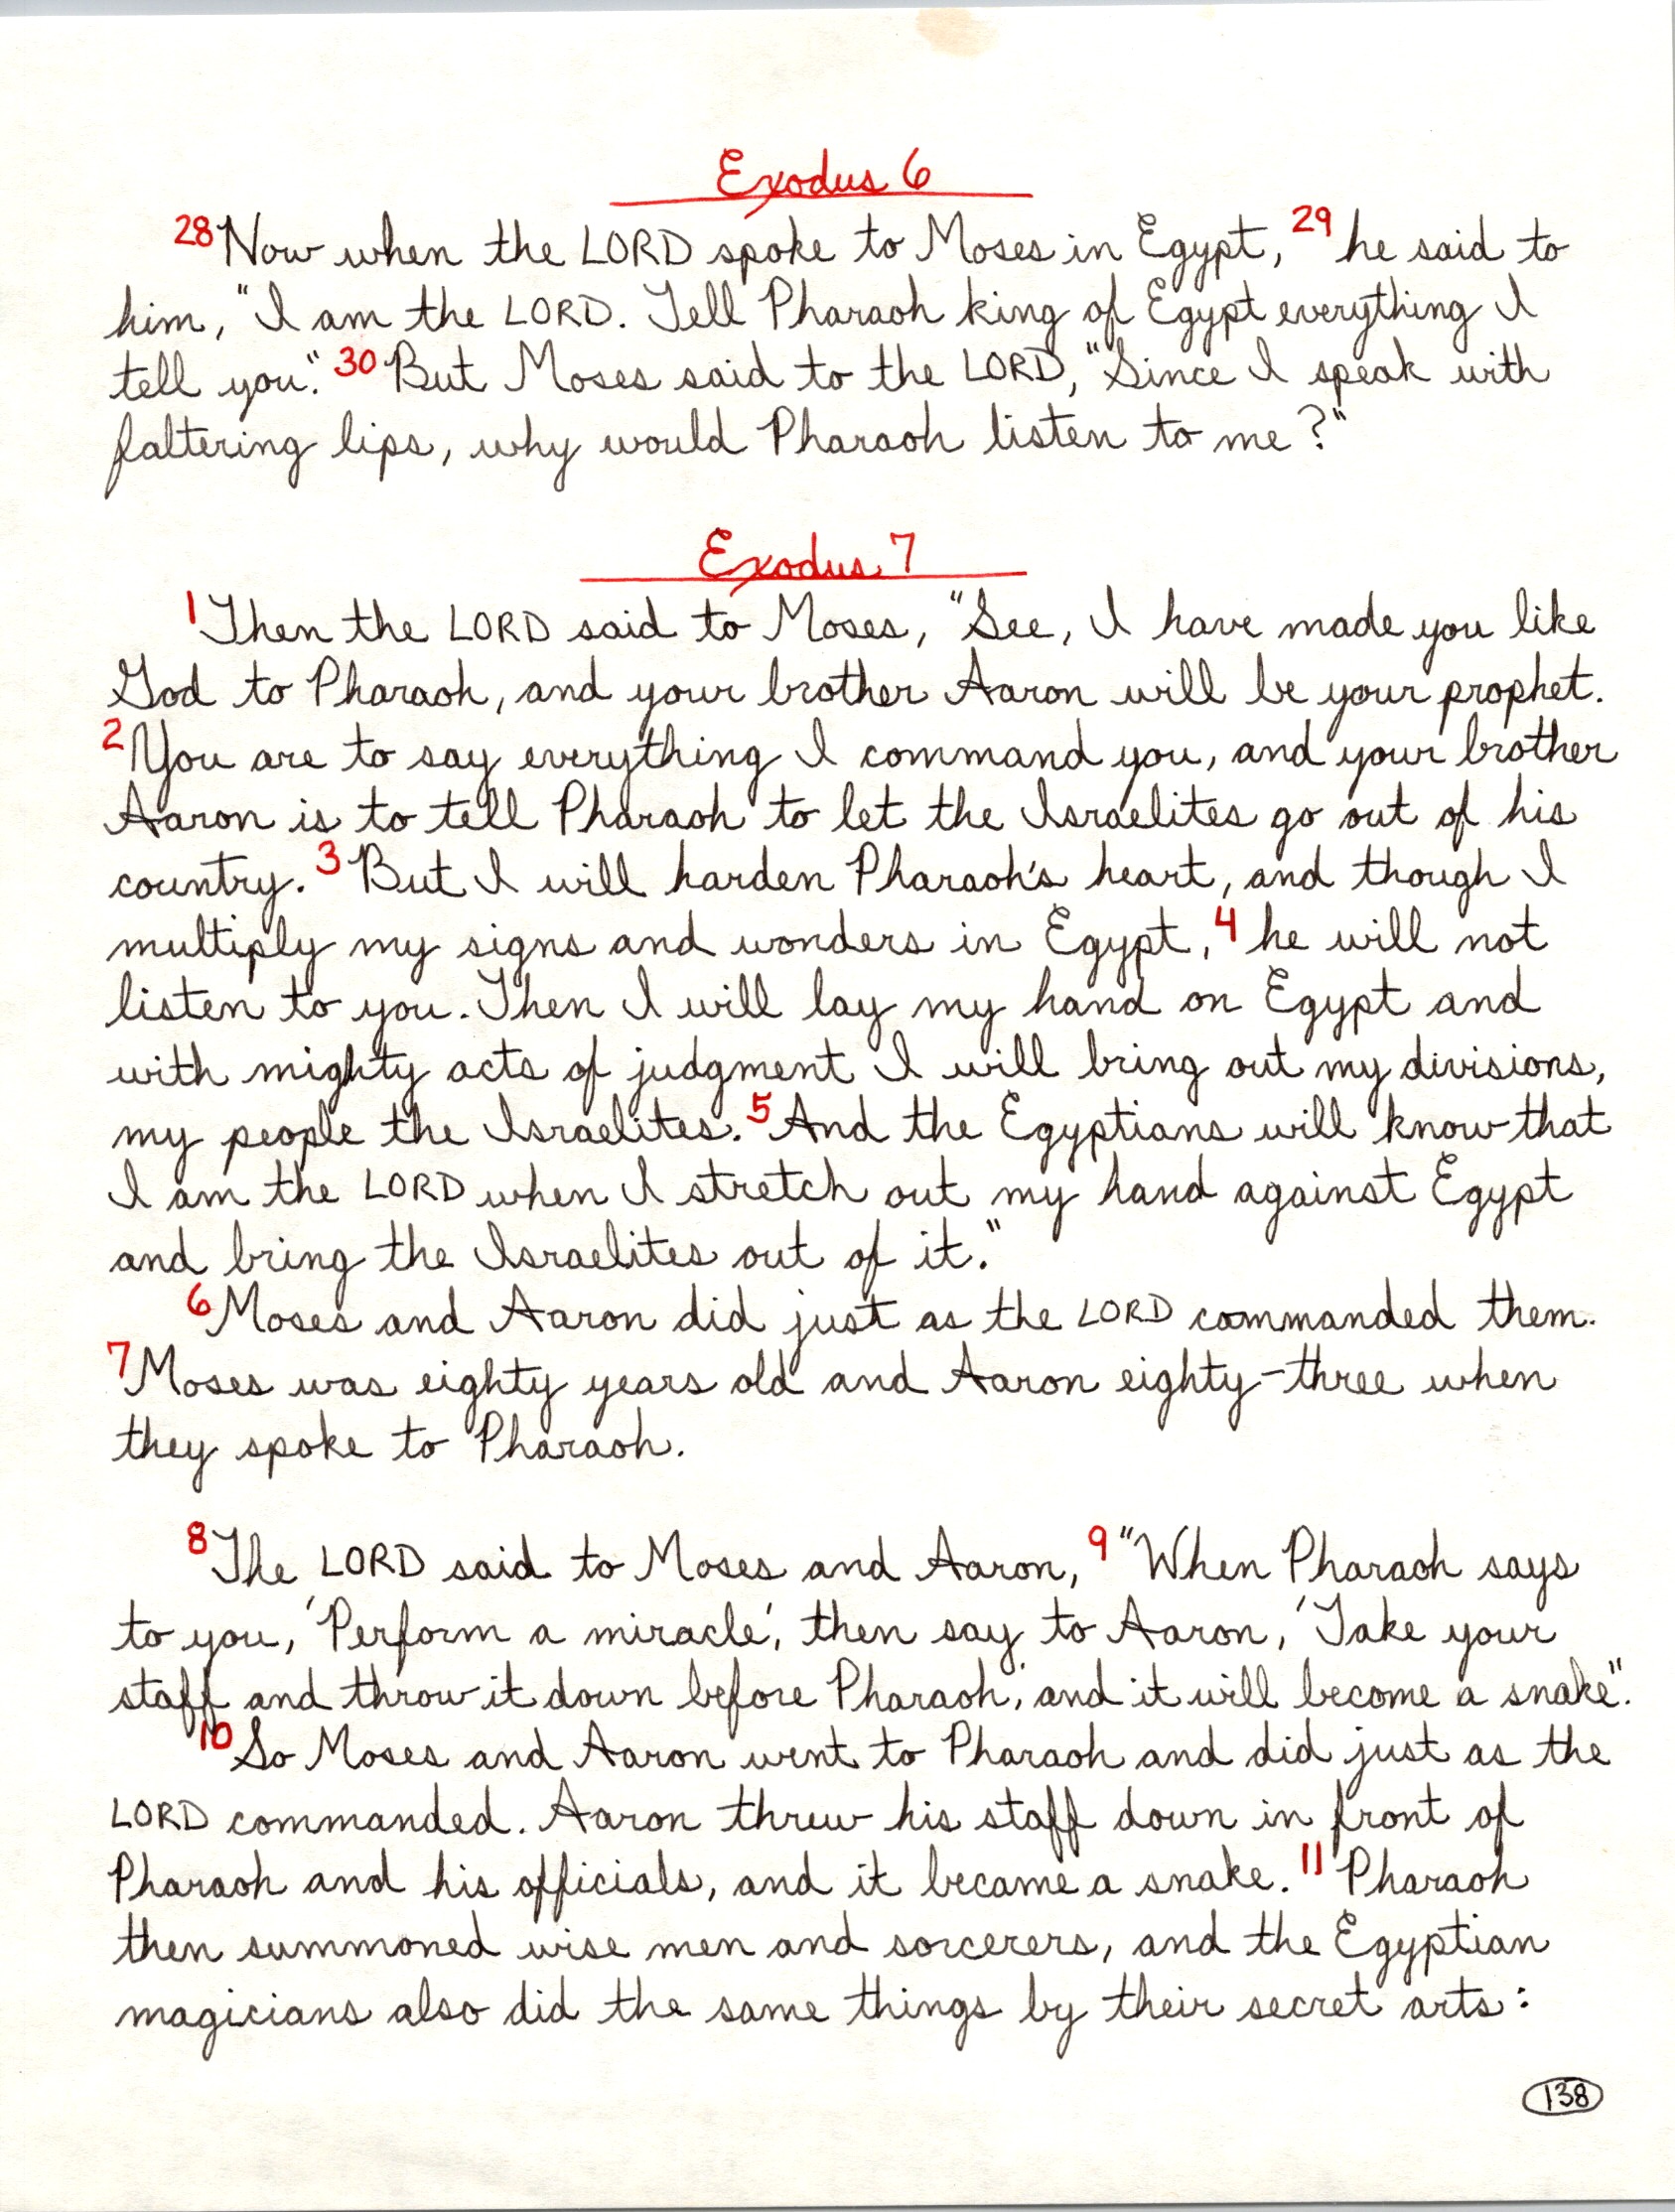 Exodus 6
28 Now when the LORD spoke to Moses in Egypt, 29 he said to
him, "I am the LORD. Tell Pharaoh king of Egypt everything I
tell you." 30 But Moses said to the LORD, "Since I speak with
faltering lips, why would Pharaoh listen to me?"
Exodus 7
1 Then the LORD said to Moses, "See, I have made you like
God to Pharaoh, and your brother Aaron will be your prophet.
2 You are to say everything I command you, and your brother
Aaron is to tell Pharaoh to let the Israelites go out of his
country. 3 But I will harden Pharaoh's heart, and though I
multiply my signs and wonders in Egypt, 4 he will not
listen to you. Then I will lay my hand on Egypt and
with mighty acts of judgment I will bring out my divisions,
my people the Israelites. 5 And the Egyptians will know that
I am the LORD when I stretch out my hand against Egypt
and bring the Israelites out of it."
6 Moses and Aaron did just as the LORD commanded them.
7 Moses was eighty years old and Aaron eighty-three when
they spoke to Pharaoh.
8 The LORD said to Moses and Aaron, 9 "When Pharaoh says
to you, 'Perform a miracle,' then say to Aaron, 'Take your
staff and throw it down before Pharaoh,' and it will become a snake."
10 So Moses and Aaron went to Pharaoh and did just as the
LORD commanded. Aaron threw his staff down in front of
Pharaoh and his officials, and it became a snake. 11 Pharaoh
then summoned wise men and sorcerers, and the Egyptian
magicians also did the same things by their secret arts:
138